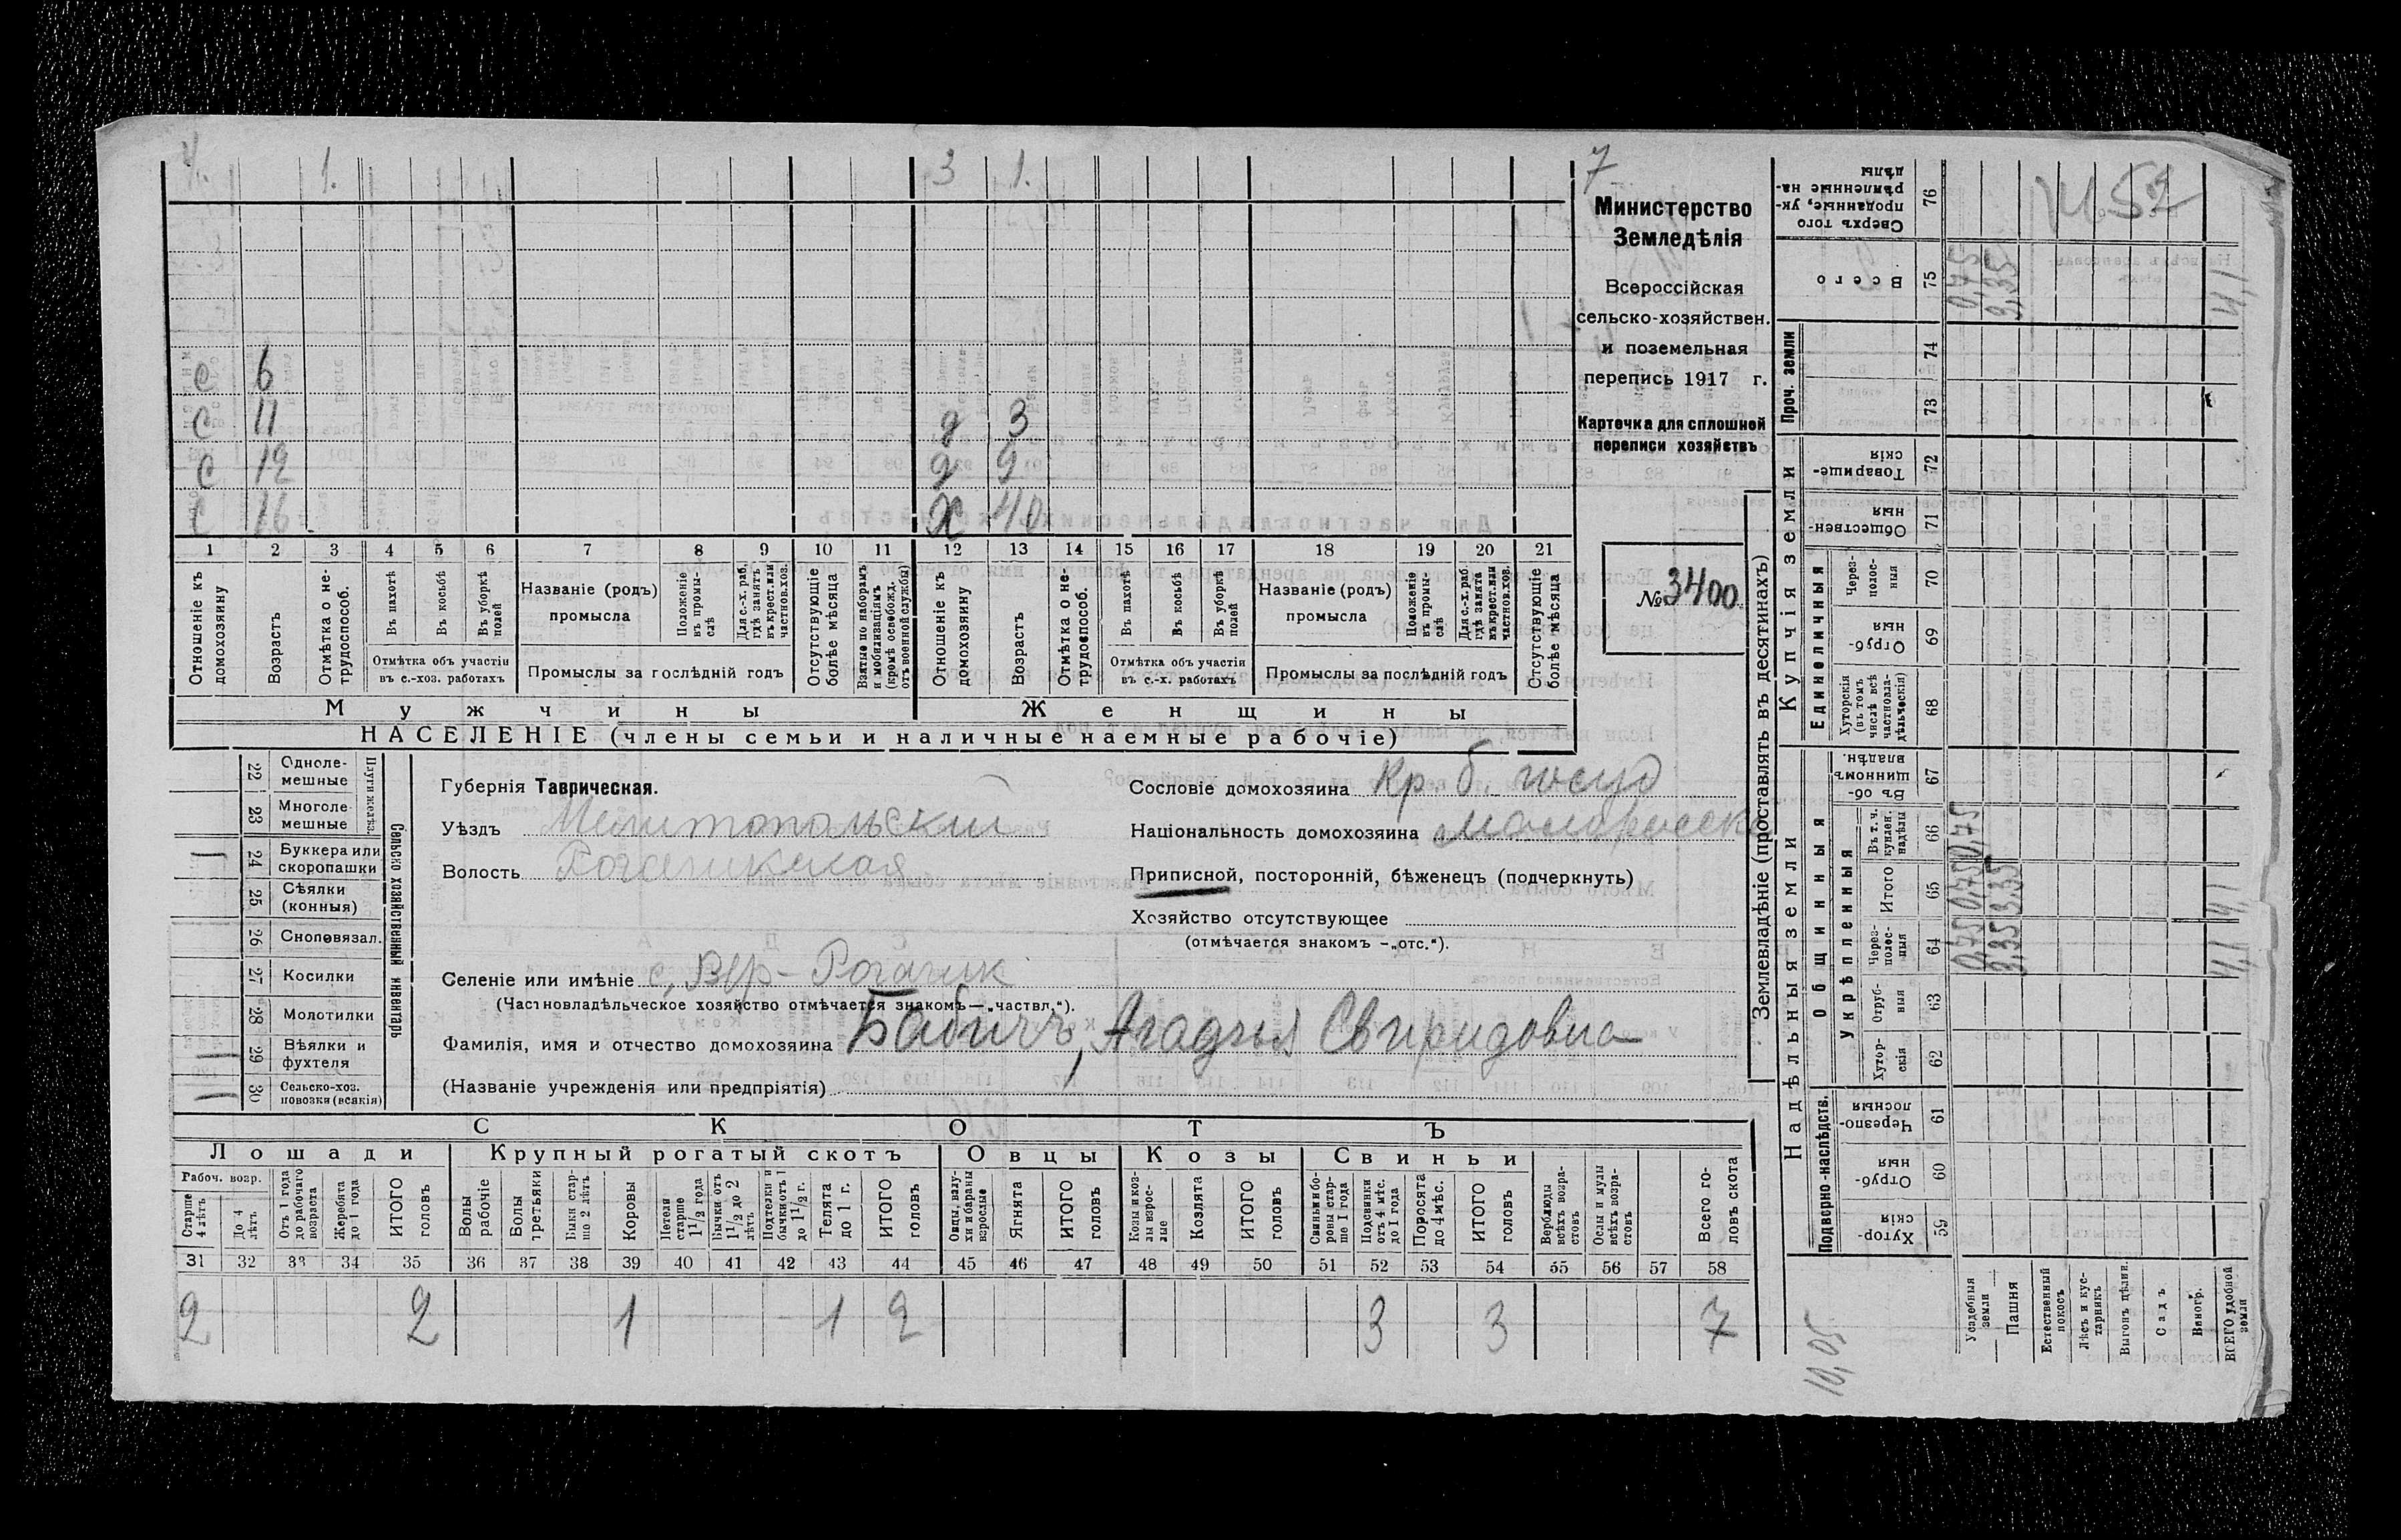 4. 1. 3 1. 7
с 6
с 11 д 3
с 12 д 9
с 16 Х 40
1 2 3 4 5 6 7 8 9 10 11 12 13 14 15 16 17 18 19 20 21
Отношеніе къ домохозяину
Возрастъ
Отмѣтка о нетрудоспособ.
Въ пахотѣ
Въ косьбѣ
Въ уборкѣ полей
Отмѣтка объ участіи въ с.-хоз. работахъ
Названіе (родъ) промысла
Положеніе въ промыслѣ
Для с.-х. раб. гдѣ занятъ въ крест. или частнов. хоз.
Промыслы за послѣдній годъ
Отсутствующіе болѣе мѣсяца
Взятые по наборамъ и мобилизаціямъ (кромѣ освобожд. отъ военной службы)
Отношеніе къ домохозяину
Возрастъ
Отмѣтка о нетрудоспособ.
Въ пахотѣ
Въ косьбѣ
Въ уборкѣ полей
Отмѣтка объ участіи въ с.-х. работахъ
Названіе (родъ) промысла
Положеніе въ промыслѣ
Для с.-х. раб. гдѣ занята въ крест. или частнов. хоз.
Промыслы за послѣдній годъ
Отсутствующіе болѣе мѣсяца
Мужчины Женщины
НАСЕЛЕНІЕ (члены семьи и наличные наемные рабочіе)
Министерство
Земледѣлія
Всероссійская
сельско-хозяйствен.
и поземельная
перепись 1917 г.
Карточка для сплошной
переписи хозяйствъ
№ 3400
Сельско хозяйственный инвентарь
Плуги желѣз.
22 Однолемешные
23 Многолемешные
24 Буккера или скоропашки 1
25 Сѣялки (конныя)
26 Сноповязал.
27 Косилки
28 Молотилки
29 Вѣялки и фухтеля 1
30 Сельско-хоз. повозки (всякія) 1
Губернія Таврическая.
Уѣздъ Мелитопольскій
Волость Рогачикская
Сословіе домохозяина Кр. б. госуд
Національность домохозяина малоросска
Приписной, посторонній, бѣженецъ (подчеркнуть)
Хозяйство отсутствующее
(отмѣчается знакомъ —„отс.“).
Селеніе или имѣніе с. Вер-Рогачик
(Частновладѣльческое хозяйство отмѣчается знакомъ—„частвл.“).
Фамилія, имя и отчество домохозяина Бабичъ, Агафья Свиридовна
(Названіе учрежденія или предпріятія)
СКОТЪ
Лошади Крупный рогатый скотъ Овцы Козы Свиньи
Рабоч. возр.
Старше 4 лѣтъ
До 4 лѣтъ
Отъ 1 года до рабочаго возраста
Жеребята до 1 года
ИТОГО головъ
Волы рабочіе
Волы третьяки
Быки старше 2 лѣтъ
Коровы
Нетели старше 1 1/2 года
Бычки отъ 1 1/2 до 2 лѣтъ
Подтелки и бычки отъ 1 до 1 1/2 г.
Телята до 1 г.
ИТОГО головъ
Овцы, валухи и бараны взрослые
Ягнята
ИТОГО головъ
Козы и козлы взрослые
Козлята
ИТОГО головъ
Свиньи и боровы старше 1 года
Подсвинки отъ 4 мѣс. до 1 года
Поросята до 4 мѣс.
ИТОГО головъ
Верблюды всѣхъ возрастовъ
Ослы и мулы всѣхъ возрастовъ
Всего головъ скота
31 32 33 34 35 36 37 38 39 40 41 42 43 44 45 46 47 48 49 50 51 52 53 54 55 56 57 58
2 2 1 1 2 3 3 7
Землевладѣніе (проставлять въ десятинахъ)
Надѣльныя земли
Купчія земли
Проч. земли
Подворно-наслѣдств.
Общинныя
Укрѣпленныя
Единоличныя
76 Сверхъ того проданные, укрѣпленные надѣлы
75 Всего 0,75 3,35 4,1
74
73
72 Товарищескія
71 Общественныя
70 Черезполосныя
69 Отрубныя
68 Хуторскія (въ томъ числѣ всѣ частновладѣльческія)
67 Въ общинномъ владѣн.
66 Въ т. ч. куплен. надѣлы 0,75
65 Итого 0,75 3,35 4,1
64 Черезполосныя 0,75 3,35 4,1
63 Отрубныя
62 Хуторскія
61 Черезполосныя
60 Отрубныя
59 Хуторскія
Усадебныя земли
Пашня
Естественный покосъ
Лѣсъ и кустарникъ
Выгонъ цѣлин.
Садъ
Виногр.
ВСЕГО удобной земли
10,05